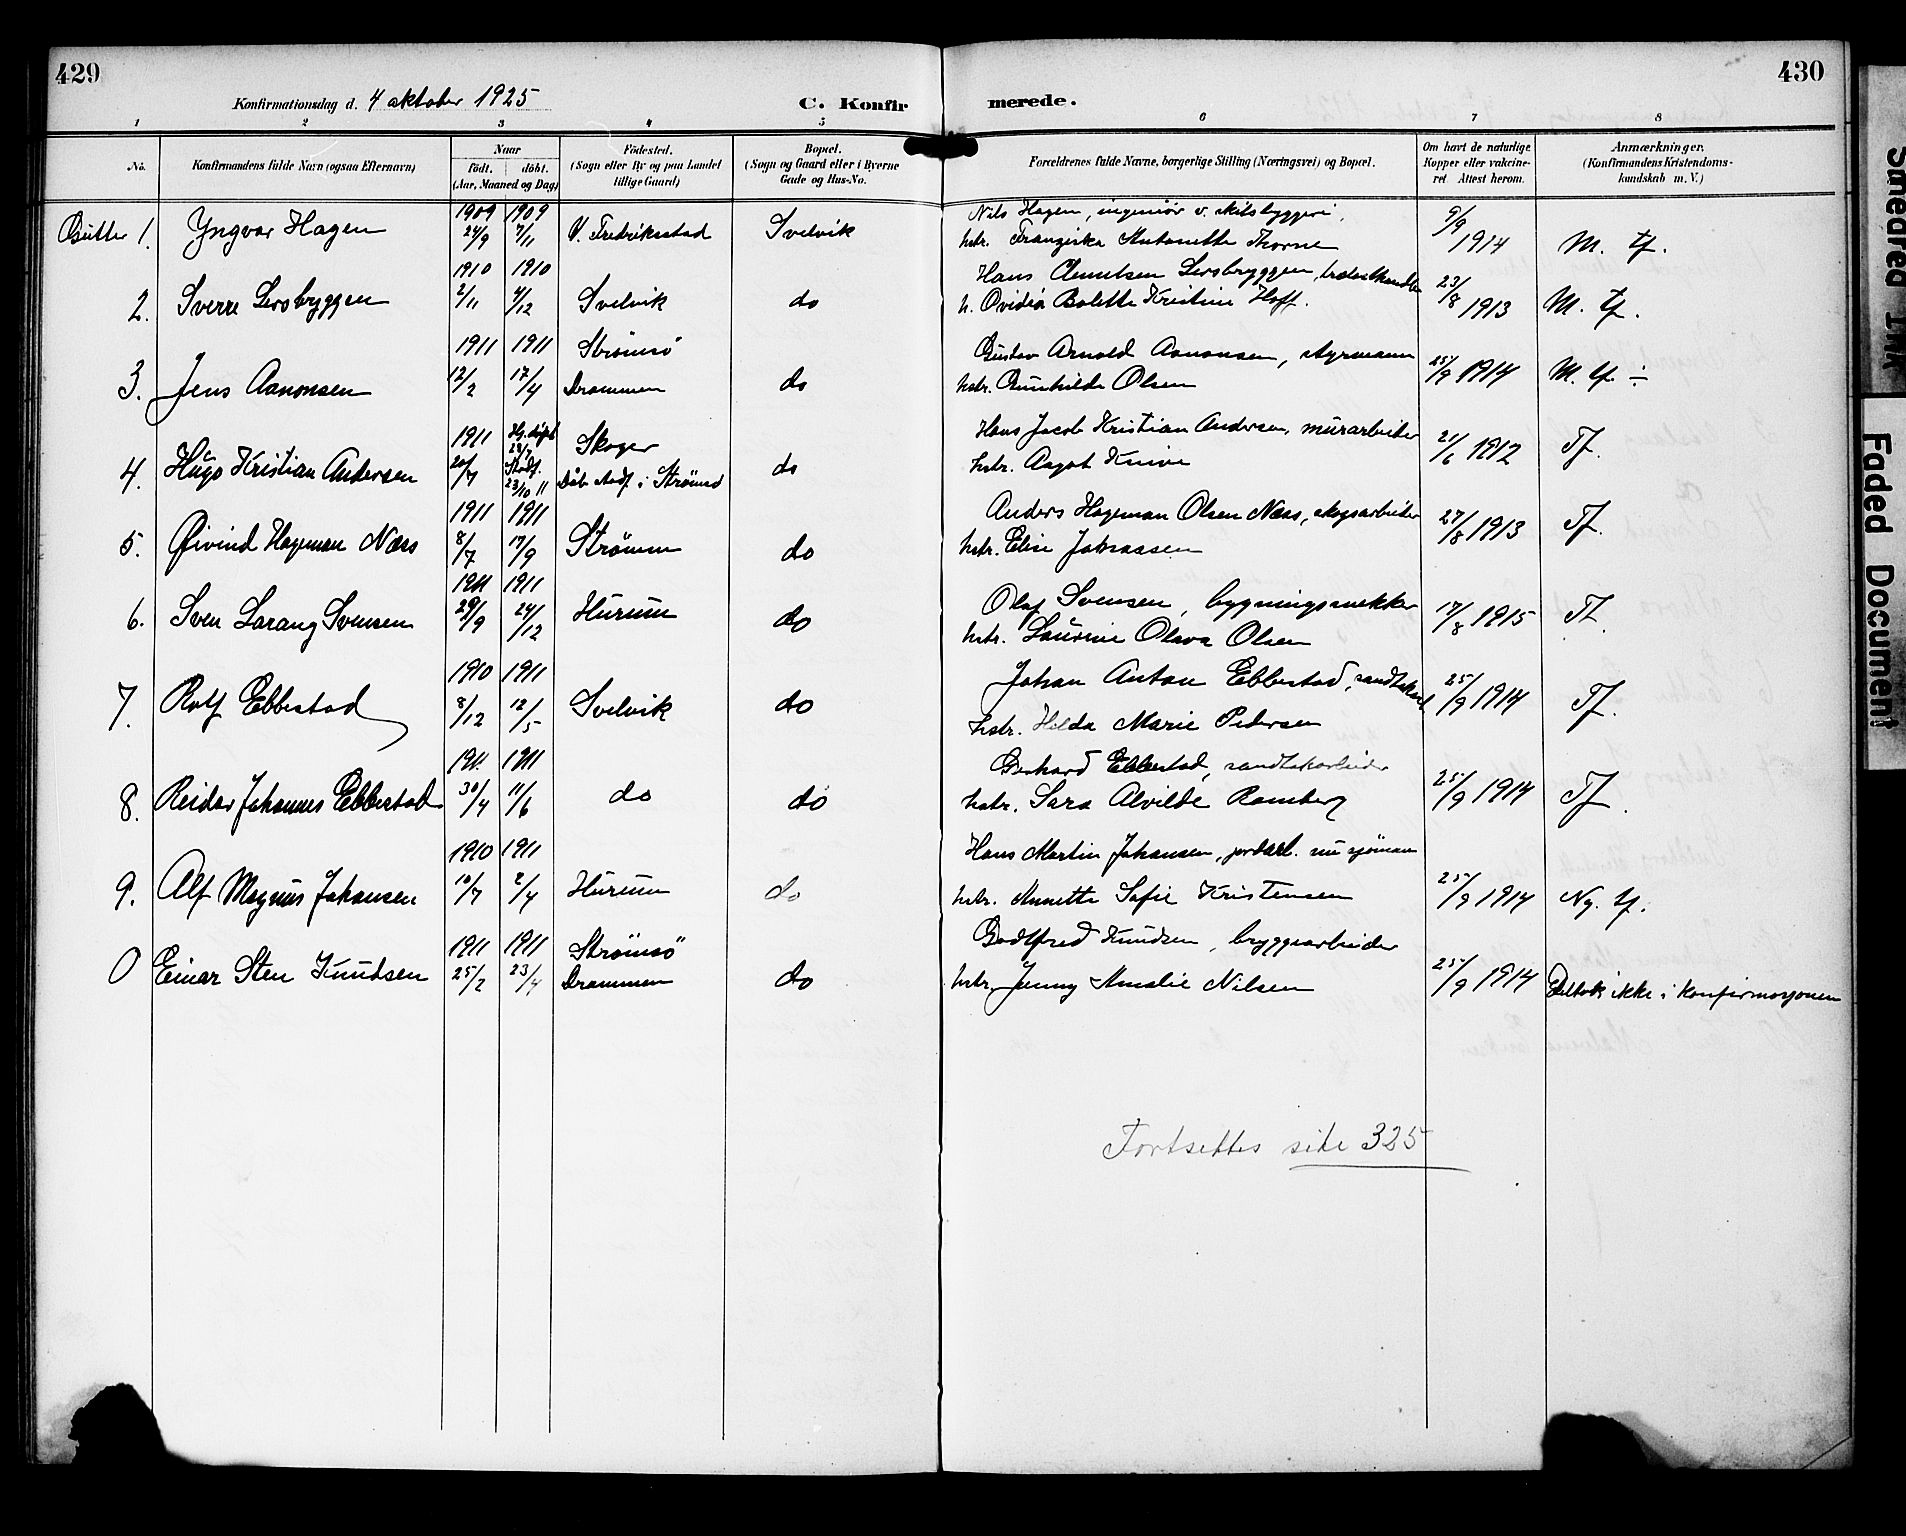 429
430
Konfirmationsdag d. 4 oktober 1925
C. Konfir
merede.
1 2 3 4 5 6 7 8
No.
Konfirmandens fulde Navn (ogsaa Efternavn)
Naar
født. døbt.
(Aar, Maaned og Dag)
Fødested.
(Sogn eller By og paa Landet
tillige Gaard)
Bopæl.
(Sogn og Gaard eller i Byerne
Gade og Hus-No.
Forældrenes fulde Navne, borgerlige Stilling (Næringsvei) og Bopæl.
Om havt de naturlige
Kopper eller vakcine-
ret Attest herom.
Anmærkninger.
(Konfirmandens Kristendoms-
kundskab m. V.)
1909 1909 Nils Hagen, ingeniör v. skibsbyggeri, 9/9
Gutter 1. Yngvar Hagen 24/9 7/11 V. Fredriksstad Svelvik hstr. Franziska Antonette Thorne 1914 M. tf.
1910 1910 Hans Lersbryggen, 23/8
2. Sverre Lersbryggen 2/11 4/12 Svelvik do h. Ovidia Bolette Kristine Hoff. 1913 M. tf.
1911 1911 Strömsö Gustav Arnold Aanonsen, styrmann
3. Jens Aanonsen 12/2 17/4 Drammen do hstr. Gunhilde Olsen 25/9 1914 M. tf. ÷
1911 Hj. döpt Skoger Hans Jacob Kristian Andersen, murarbeider
4. Hugo Kristian Andersen 20/7 23/7 Stadf. 23/10 11 Dåb stadf. i Strömsö do hstr. Aagot Knive 21/6 1912 Tf.
1911 1911 Anders Hageman Olsen Næss, skogsarbeider
5. Øivind Hageman Næss 8/7 17/9 Strömm do hstr. Elise Johnassen 27/8 1913 Tf.
1911 1911 Olaf Svensen, bygningssnekker
6. Sven Svensen 29/9 24/12 Hurum do hstr. Laurine Olava Olsen 17/8 1915 Tf.
1910 1911 Johan Anton Ebbestad,
7. Rolf Ebbestad 8/12 12/5 Svelvik do hstr. Helda Marie Pedersen 25/9 1914 Tf.
1911 1911 Gerhard Ebbestad, sandtakarbeider
8. Reidar Johannes Ebbestad 30/4 11/6 do do hstr. Sara Alvilde Ramberg 25/9 1914 Tf.
1910 1911 Hans Martin Johansen, jordarb. nu sjöman
9. Alf Magnus Johansen 10/7 2/4 Hurum do hstr. Annette Sofie Kristensen 25/9 1914 Ng. tf.
1911 1911 Strömsö Godtfred Knudsen, bryggearbeider
0 Einar Sten Knudsen 25/2 23/4 Drammen do hstr. Jenny Amalie Nilsen 25/9 1914 Deltok ikke i konfirmasjonen
Fortsettes side 325
Smeared Ink
Faded Document